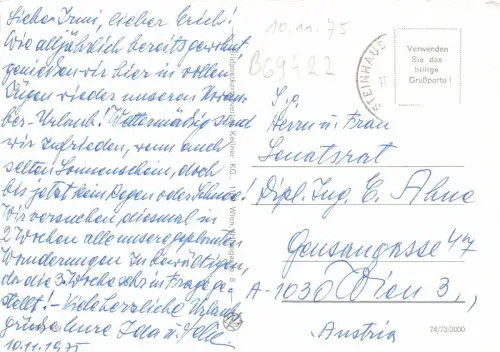 Liebe Irmi, lieber Erich!
Wie alljährlich bereits gewohnt
genießen wir hier in vollen
Zügen wieder unseren
ber-Urlaub! Wettermäßig sind
wir zufrieden, wenn auch
selten Sonnenschein, doch
bis jetzt kein Regen oder Schnee!
Wir versuchen diesmal in
2 Wochen alle unsere geplanten
Wanderungen zu bewältigen,
da die 3. Woche sehr in Frage ge-
stellt! - Viele herzliche Urlaubs-
grüße Eure Ida u.
10.11.1975
10.11.75
B69422
STEINHAUS
Verwenden
Sie das
billige
Grußporto!
S.g.
Herrn und Frau
Senatsrat
Dipl. Ing. E.
Gensangasse 4/7
A-1030 Wien 3.,
Austria
74/73/3000